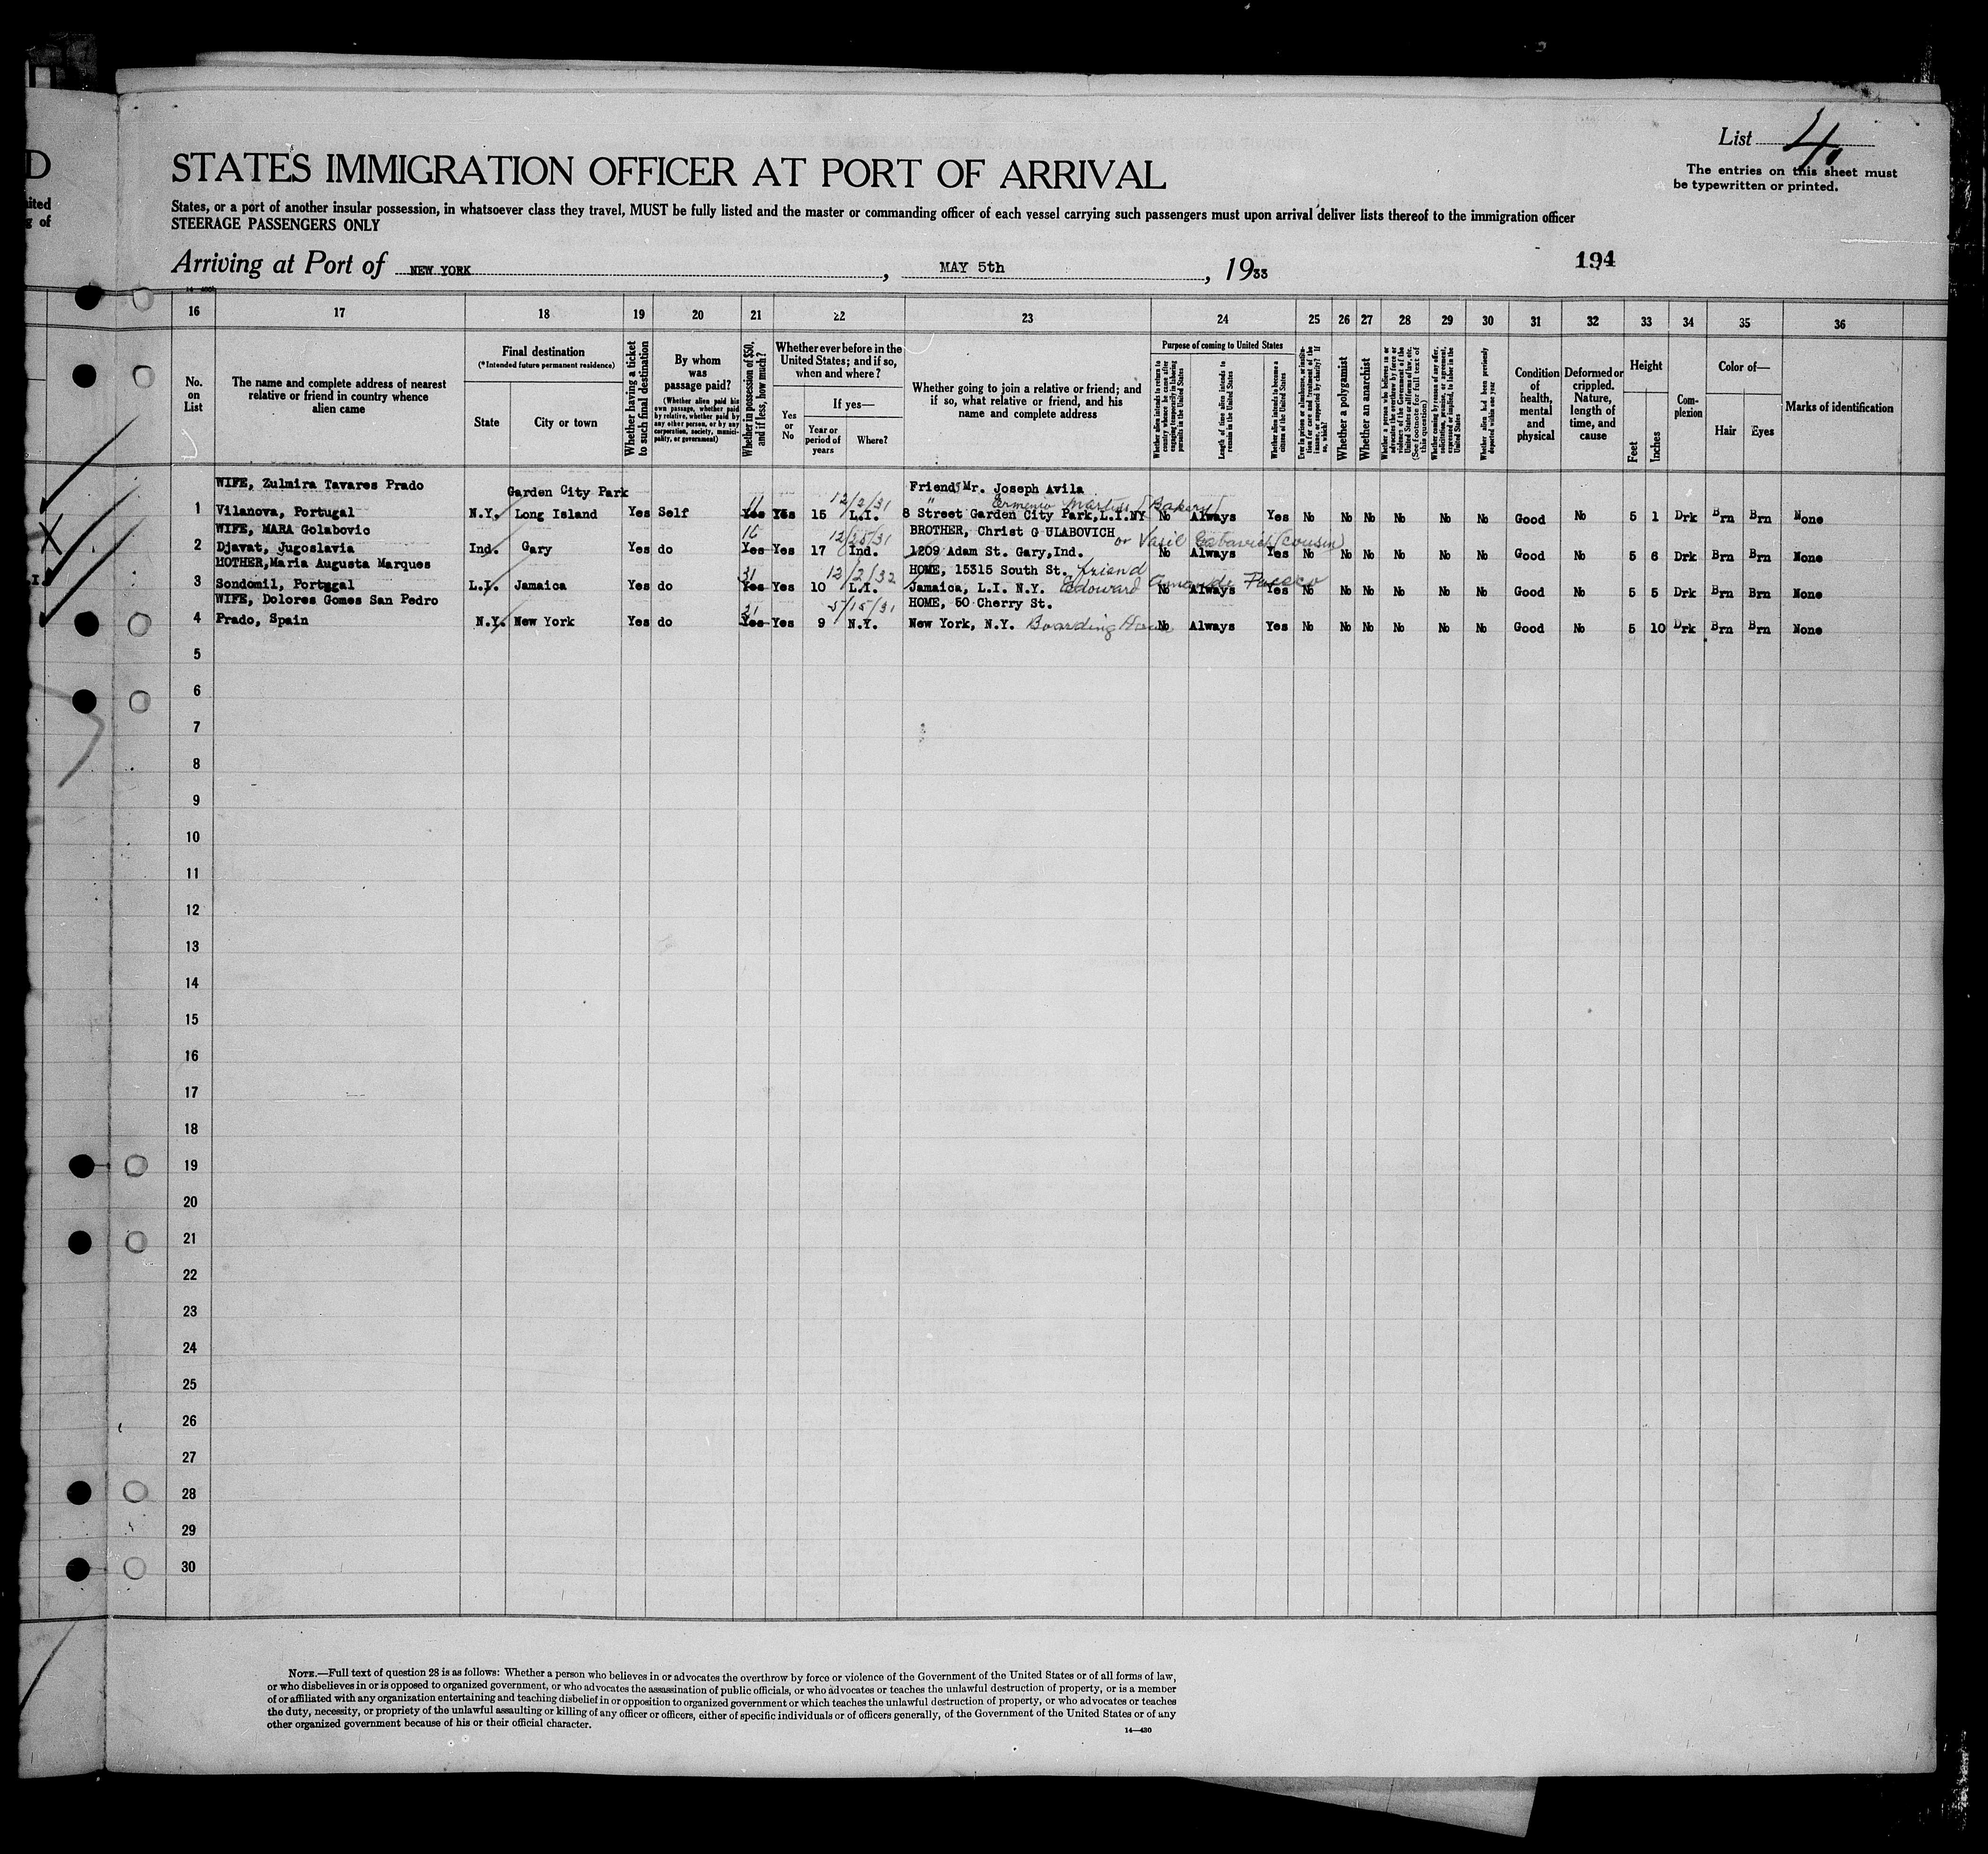 D
List 4
STATES IMMIGRATION OFFICER AT PORT OF ARRIVAL
The entries on this sheet must
be typewritten or printed.
States, or a port of another insular possession, in whatsoever class they travel, MUST be fully listed and the master or commanding officer of each vessel carrying such passengers must upon arrival deliver lists thereof to the immigration officer
STEERAGE PASSENGERS ONLY
Arriving at Port of NEW YORK, MAY 5th, 1933
194
16 17 18 19 20 21 22 23 24 25 26 27 28 29 30 31 32 33 34 35 36
No. on List
The name and complete address of nearest relative or friend in country whence alien came
Final destination
(*Intended future permanent residence)
State
City or town
Whether having a ticket to such final destination
By whom was passage paid?
(Whether alien paid his own passage, whether paid by relative, whether paid by any other person, or by any corporation, society, municipality, or government)
Whether in possession of $50, and if less, how much?
Whether ever before in the United States; and if so, when and where?
Yes or No
If yes—
Year or period of years
Where?
Whether going to join a relative or friend; and if so, what relative or friend, and his name and complete address
Purpose of coming to United States
Whether alien intends to return to country whence he came after engaging temporarily in laboring pursuits in the United States
Length of time alien intends to remain in the United States
Whether alien intends to become a citizen of the United States
Ever in prison or almshouse, or institution for care and treatment of the insane, or supported by charity? If so, which?
Whether a polygamist
Whether an anarchist
Whether a person who believes in or advocates the overthrow by force or violence of the Government of the United States or all forms of law, etc. (See footnote for full text of this question)
Whether coming by reason of any offer, solicitation, promise, or agreement, expressed or implied, to labor in the United States
Whether alien had been previously deported within one year
Condition of health, mental and physical
Deformed or crippled. Nature, length of time, and cause
Height
Feet
Inches
Complexion
Color of—
Hair
Eyes
Marks of identification
WIFE, Zulmira Tavares Prado Garden City Park 11 12/2/31 Friend Mr. Joseph Avila
1 Vilanova, Portugal N.Y. Long Island Yes Self Yes Yes 15 L.I. 8 Street Garden City Park, L.I. NY No Always Yes No No No No No No Good No 5 1 Drk Brn Brn None
WIFE, MARA Golabovic 12/25/31 BROTHER, Christ G ULABOVICH or Vasil (cousin)
2 Djavat, Jugoslavia Ind. Gary Yes do Yes Yes 17 Ind. 1209 Adam St. Gary, Ind. No Always Yes No No No No No No Good No 5 6 Drk Brn Brn None
MOTHER, Maria Augusta Marques 31 12/2/32 HOME, 15315 South St. friend
3 Sondomil, Portugal L.I. Jamaica Yes do Yes Yes 10 L.I. Jamaica, L.I. N.Y. Edouard No Always Yes No No No No No No Good No 5 5 Drk Brn Brn None
WIFE, Dolores Gomes San Pedro 21 5/15/31 HOME, 50 Cherry St.
4 Prado, Spain N.Y. New York Yes do Yes Yes 9 N.Y. New York, N.Y. Boarding House No Always Yes No No No No No No Good No 5 10 Drk Brn Brn None
5
6
7
8
9
10
11
12
13
14
15
16
17
18
19
20
21
22
23
24
25
26
27
28
29
30
NOTE.—Full text of question 28 is as follows: Whether a person who believes in or advocates the overthrow by force or violence of the Government of the United States or of all forms of law,
or who disbelieves in or is opposed to organized government, or who advocates the assassination of public officials, or who advocates or teaches the unlawful destruction of property, or is a member
of or affiliated with any organization entertaining and teaching disbelief in or opposition to organized government or which teaches the unlawful destruction of property, or who advocates or teaches
the duty, necessity, or propriety of the unlawful assaulting or killing of any officer or officers, either of specific individuals or of officers generally, of the Government of the United States or of any
other organized government because of his or their official character.
14—430